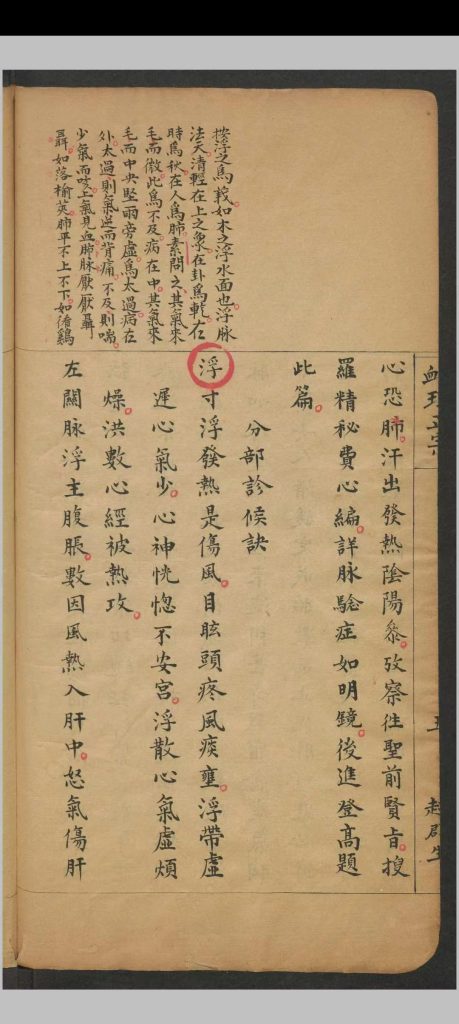 按浮之爲義如木之浮水面也浮脉
法天清輕在上之象在卦爲乾在
時爲秋在人爲肺素問之其氣來
毛而微此爲不及病在中其氣來
毛而中央堅兩旁虛爲太過病在
外太過則氣逆而背痛不及則喘
少氣而咳上氣見血肺脉厭厭聶
聶如落榆莢肺平不上不下如循鷄
心恐肺汗出發熱陰陽叅攷察往聖前賢旨搜
羅精秘費心編詳脉驗症如明鏡後進登高題
此篇
分部診候訣
浮寸浮發熱是傷風目眩頭疼風痰壅浮帶虛
遲心氣少心神恍惚不安宫浮散心氣虛煩
燥洪數心經被熱攻
左關脉浮主腹脹數因風熱入肝中怒氣傷肝